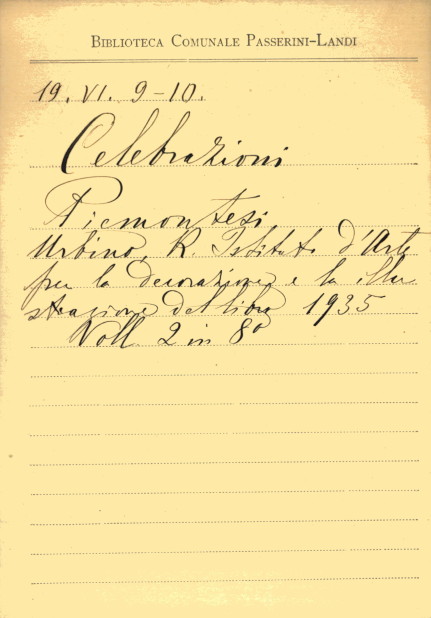 BIBLIOTECA COMUNALE PASSERINI-LANDI
19. VI. 9-10.
Celebrazioni
Piemontesi
Urbino, R. Istituto d'Arte
per la decorazione e la illu
strazione del libro 1935
Voll. 2 in 8º